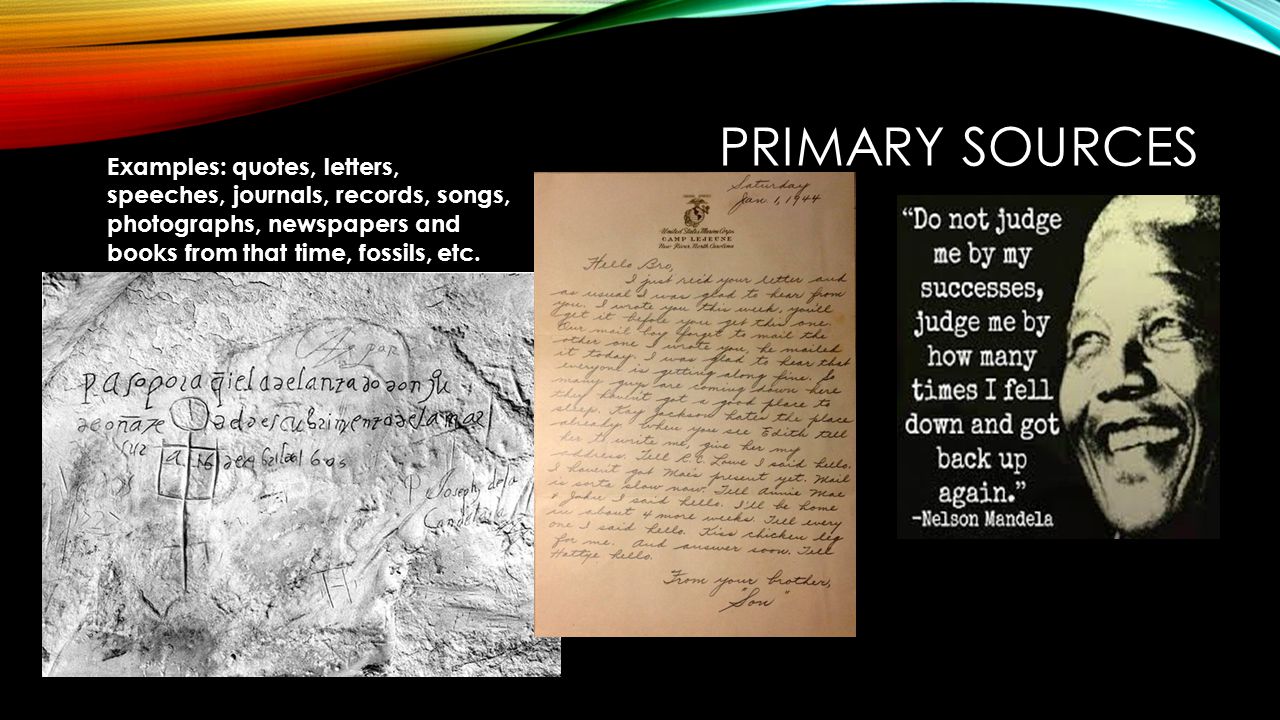 PRIMARY SOURCES
Examples: quotes, letters,
speeches, journals, records, songs,
photographs, newspapers and
books from that time, fossils, etc.
paso por aq
del mar
Joseph de la
Saturday
Jan. 1, 1944
United States Marine Corps
CAMP LEJEUNE
New River, North Carolina
Hello Bro,
I just rec'd your letter and
as usual I was glad to hear from
you. I wrote you this week, you'll
get it before you get this one.
Our mail boy forgot to mail the
other one I wrote you, he mailed
it today. I was glad to hear that
everyone is getting along fine. So
many guys are coming down here
they haven't got a good place to
sleep. Kay Jackson hates the place
already. When you see Edith tell
her to write me, give her my
address. Tell R.C. Lowe I said hello.
I haven't got Mae's present yet. Mail
is sorta slow now. Tell Annie Mae
& Jake I said hello. I'll be home
in about 4 more weeks. Tell every
one I said hello. Kiss chicken leg
for me. And answer soon. Tell
Hattye hello.
From your brother,
"Son"
“Do not judge
me by my
successes,
judge me by
how many
times I fell
down and got
back up
again.”
-Nelson Mandela